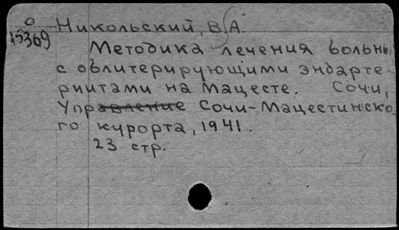 О
15369
Никольский, В.А.
Методика лечения больны
с облитерирующими эндарте-
риитами на Мацесте. Сочи,
Управление Сочи-Мацестинско
го курорта, 1941.
23 стр.